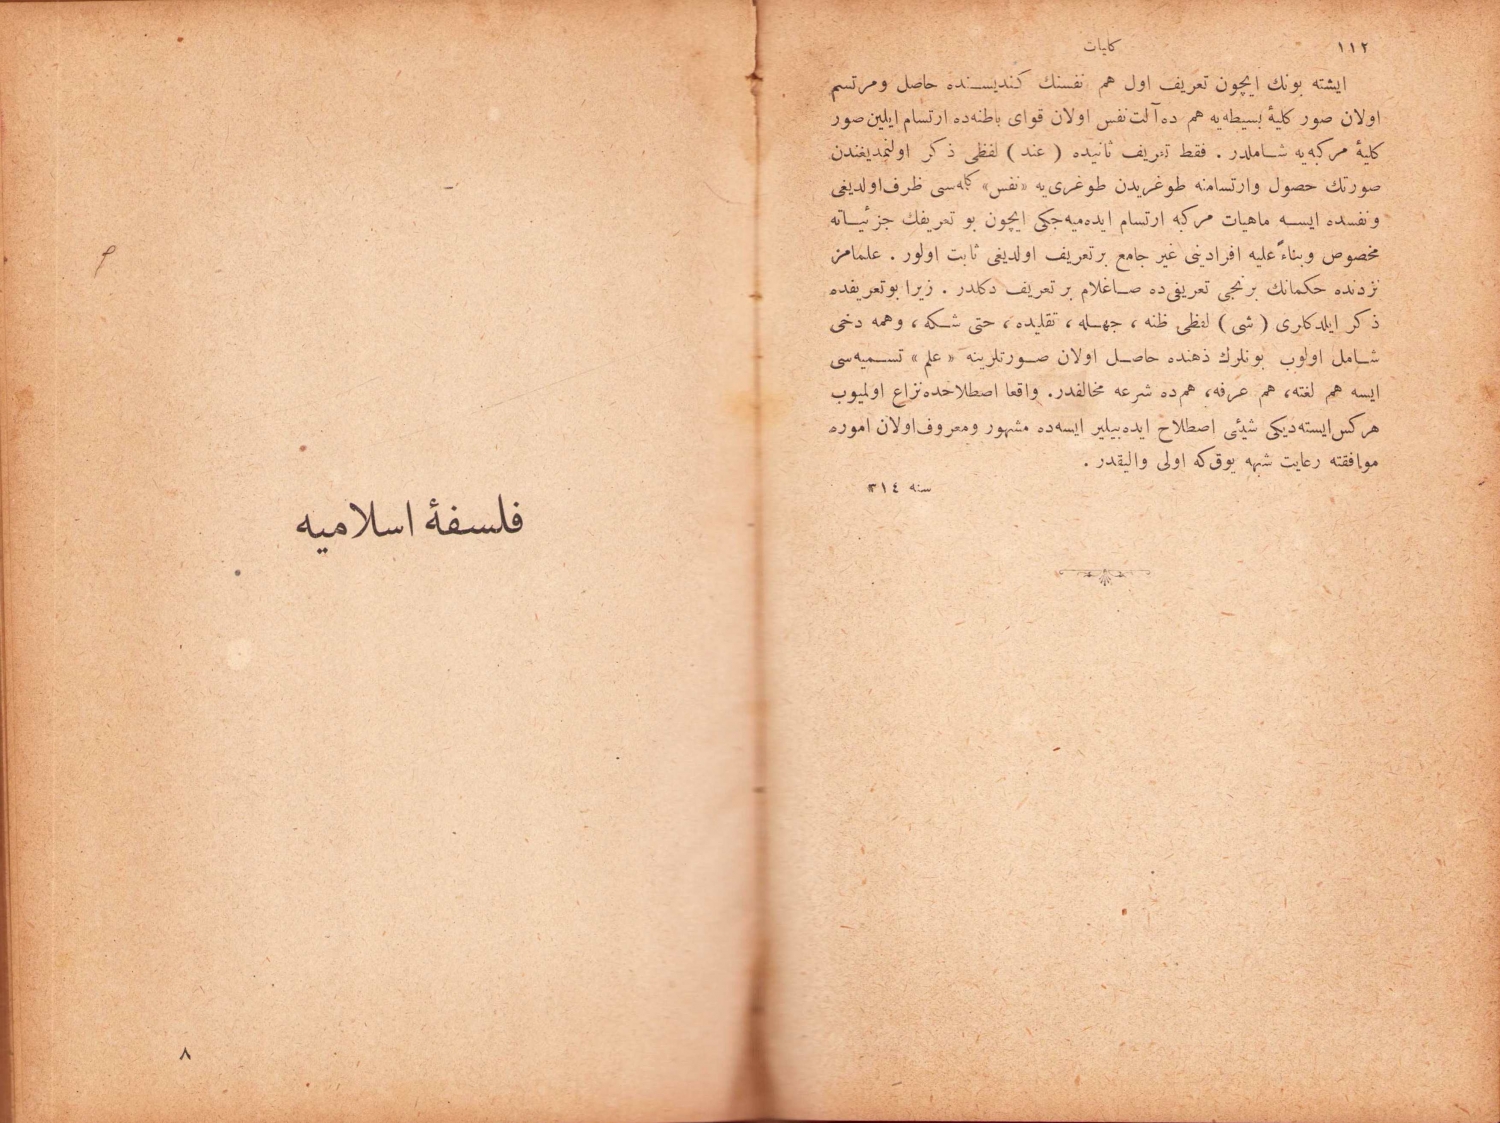 ١١٢
كليات
ايشته بونك ايچون تعريف اول هم نفسنك كنديسنده حاصل ومرتسم
اولان صور كليۀ بسيطه‌يه هم ده آلت نفس اولان قواى باطنه‌ده ارتسام ايلين صور
كليۀ مركبه‌يه شاملدر . فقط تعريف ثانيده ( عند ) لفظى ذكر اولنمديغندن
صورتك حصول وارتسامنه طوغريدن طوغرى‌يه «نفس» كله‌سى ظرف اولديغى
ونفسده ايسه ماهيات مركبه ارتسام ايده‌ميه‌جكى ايچون بو تعريفك جزئياته
مخصوص وبناءً عليه افرادينى غير جامع برتعريف اولديغى ثابت اولور . علمامز
نزدنده حكمانك برنجى تعريفى‌ده صاغلام بر تعريف دكلدر . زيرا بوتعريفده
ذكر ايلدكلرى ( شى ) لفظى ظنه ، جهله ، تقليده ، حتى شكه ، وهمه دخى
شامل اولوب بونلرك ذهنده حاصل اولان صورتلرينه « علم » تسميه‌سى
ايسه هم لغته، هم عرفه، هم‌ده شرعه مخالفدر. واقعا اصطلاحده نزاع اولميوب
هركس ايسته‌ديكى شيئى اصطلاح ايده‌بيلير ايسه‌ده مشهور ومعروف اولان اموره
موافقته رعايت شبهه يوق كه اولى واليقدر .
سنه ٣١٤
فلسفۀ اسلاميه
٨